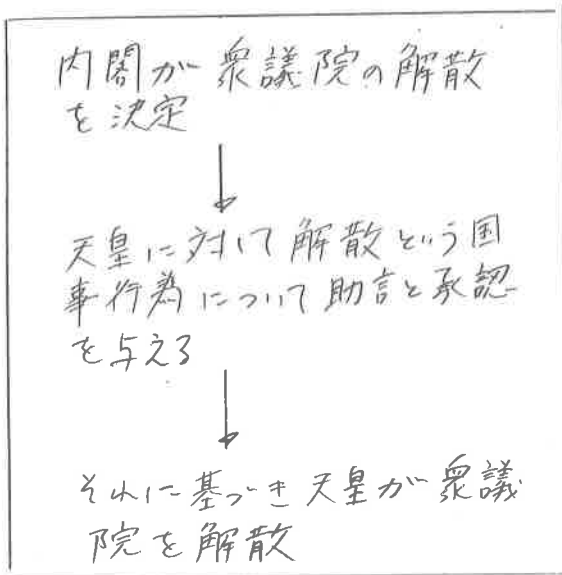 内閣が衆議院の解散
を決定
↓
天皇に対して解散という国
事行為について助言と承認
を与える
↓
それに基づき天皇が衆議
院を解散